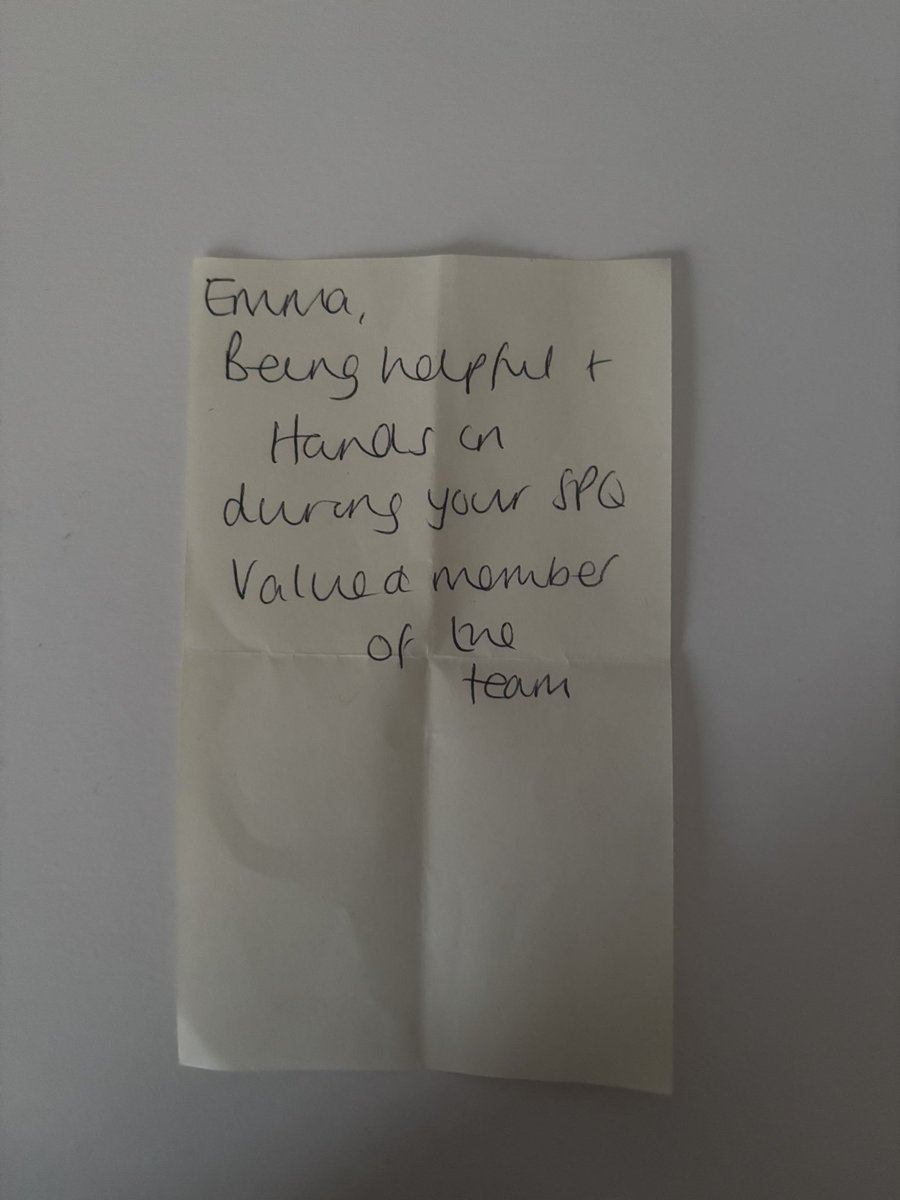 Emma,
Being helpful +
Hands on
during your SPQ
Valued member
of the
team